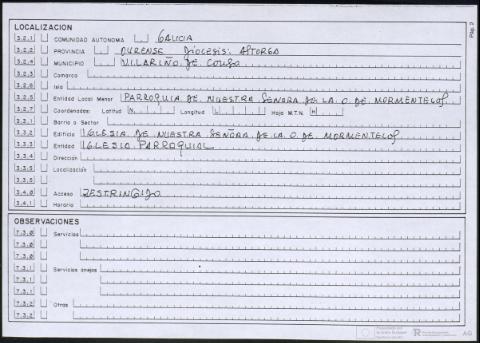 Pág. 2
LOCALIZACION
3.2.1 COMUNIDAD AUTONOMA GALICIA
3.2.2 PROVINCIA OURENSE Diócesis: ASTORGA
3.2.4 MUNICIPIO VILARIÑO DE CONSO
3.2.3 Comarca
3.2.6 Isla
3.2.5 Entidad Local Menor PARROQUIA DE NUESTRA SEÑORA DE LA O. DE MORMENTELOS
3.2.7 Coordenadas: Latitud N Longitud L Hoja M.T.N. H
3.3.1 Barrio o Sector
3.3.2 Edificio IGLESIA DE NUESTRA SEÑORA DE LA O. DE MORMENTELOS
3.3.3 Entidad IGLESIA PARROQUIAL
3.3.4 Dirección
3.3.5 Localización
3.3.5
3.4.0 Acceso RESTRINGIDO
3.4.1 Horario
OBSERVACIONES
7.3.0 Servicios
7.3.0
7.3.0
7.3.1 Servicios anejos
7.3.1
7.3.1
7.3.2 Otros
7.3.2
AG